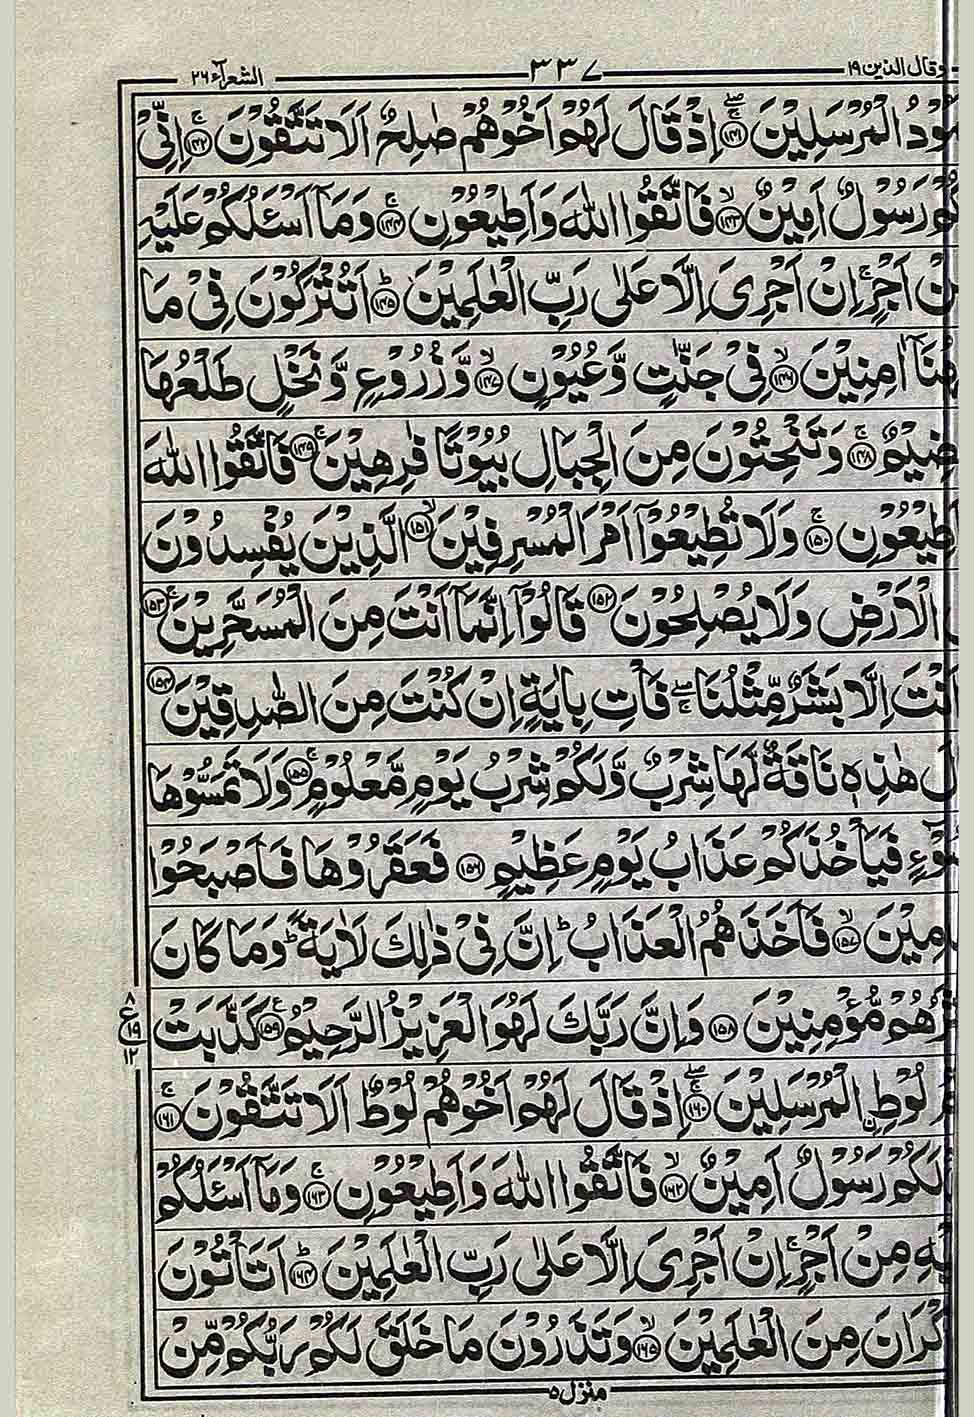 وقال الذين ١٩ ٣٣٧ الشعرآء ٢٦
الْمُرْسَلِيْنَ ﴿۱۴۱﴾ اِذْ قَالَ لَهُمْ اَخُوْهُمْ صٰلِحٌ اَلَا تَتَّقُوْنَ ﴿۱۴۲﴾ اِنِّیْ
رَسُوْلٌ اَمِيْنٌ ﴿۱۴۳﴾ فَاتَّقُوا اللّٰهَ وَاَطِيْعُوْنِ ﴿۱۴۴﴾ وَمَآ اَسْـَٔلُكُمْ عَلَيْهِ
اَجْرٍ ۚ اِنْ اَجْرِیَ اِلَّا عَلٰى رَبِّ الْعٰلَمِيْنَ ﴿۱۴۵﴾ اَتُتْرَكُوْنَ فِیْ مَا
اٰمِنِيْنَ ﴿۱۴۶﴾ فِیْ جَنّٰتٍ وَّعُيُوْنٍ ﴿۱۴۷﴾ وَّزُرُوْعٍ وَّنَخْلٍ طَلْعُهَا
ضِيْمٌ ﴿۱۴۸﴾ وَتَنْحِتُوْنَ مِنَ الْجِبَالِ بُيُوْتًا فٰرِهِيْنَ ﴿۱۴۹﴾ فَاتَّقُوا اللّٰهَ
اَطِيْعُوْنِ ﴿۱۵۰﴾ وَلَا تُطِيْعُوْٓا اَمْرَ الْمُسْرِفِيْنَ ﴿۱۵۱﴾ الَّذِيْنَ يُفْسِدُوْنَ
الْاَرْضِ وَلَا يُصْلِحُوْنَ ﴿۱۵۲﴾ قَالُوْٓا اِنَّمَآ اَنْتَ مِنَ الْمُسَحَّرِيْنَ ﴿۱۵۳﴾
اَنْتَ اِلَّا بَشَرٌ مِّثْلُنَا ۖۚ فَاْتِ بِاٰيَةٍ اِنْ كُنْتَ مِنَ الصّٰدِقِيْنَ ﴿۱۵۴﴾
هٰذِهٖ نَاقَةٌ لَّهَا شِرْبٌ وَّلَكُمْ شِرْبُ يَوْمٍ مَّعْلُوْمٍ ﴿۱۵۵﴾ وَلَا تَمَسُّوْهَا
فَيَاْخُذَكُمْ عَذَابُ يَوْمٍ عَظِيْمٍ ﴿۱۵۶﴾ فَعَقَرُوْهَا فَاَصْبَحُوْا
دِمِيْنَ ﴿۱۵۷﴾ فَاَخَذَهُمُ الْعَذَابُ ؕ اِنَّ فِیْ ذٰلِكَ لَاٰيَةً ؕ وَمَا كَانَ
هُمْ مُّؤْمِنِيْنَ ﴿۱۵۸﴾ وَاِنَّ رَبَّكَ لَهُوَ الْعَزِيْزُ الرَّحِيْمُ ﴿۱۵۹﴾ كَذَّبَتْ
٨ ع ١٩ ١٢
لُوْطِ ۨالْمُرْسَلِيْنَ ﴿۱۶۰﴾ اِذْ قَالَ لَهُمْ اَخُوْهُمْ لُوْطٌ اَلَا تَتَّقُوْنَ ﴿۱۶۱﴾
لَكُمْ رَسُوْلٌ اَمِيْنٌ ﴿۱۶۲﴾ فَاتَّقُوا اللّٰهَ وَاَطِيْعُوْنِ ﴿۱۶۳﴾ وَمَآ اَسْـَٔلُكُمْ
مِنْ اَجْرٍ ۚ اِنْ اَجْرِیَ اِلَّا عَلٰى رَبِّ الْعٰلَمِيْنَ ﴿۱۶۴﴾ اَتَاْتُوْنَ
كْرَانَ مِنَ الْعٰلَمِيْنَ ﴿۱۶۵﴾ وَتَذَرُوْنَ مَا خَلَقَ لَكُمْ رَبُّكُمْ مِّنْ
منزل ٥